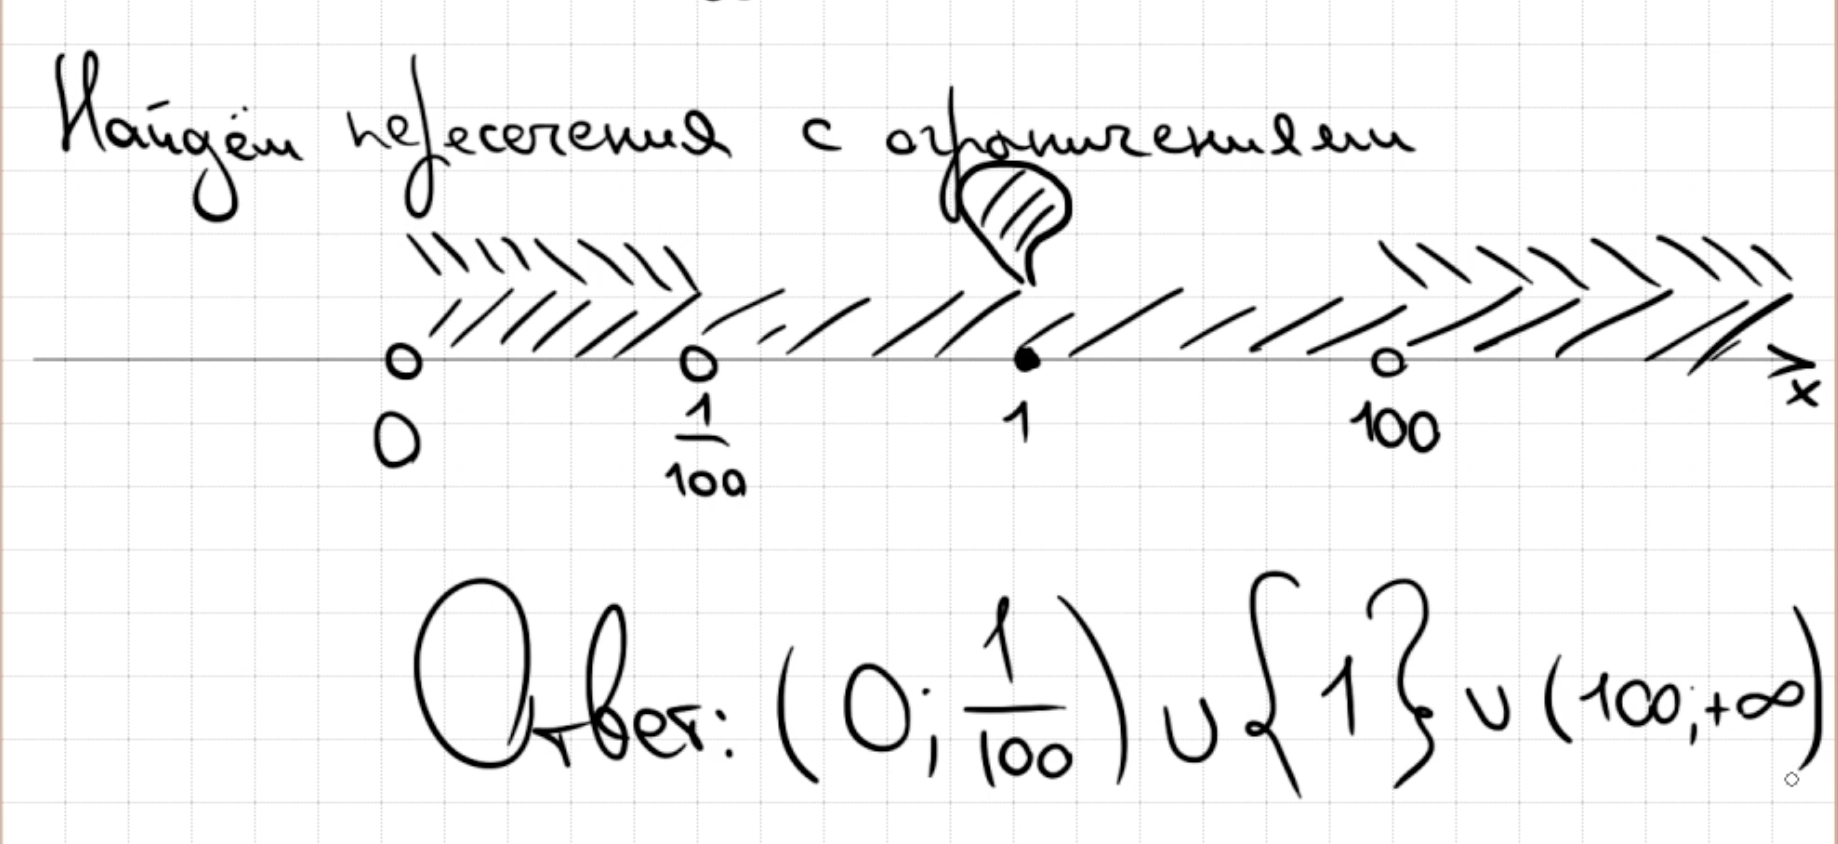 Найдём пересечения с ограничениями
0 1/100 1 100 x
Ответ: (0; 1/100) ∪ {1} ∪ (100; +∞)